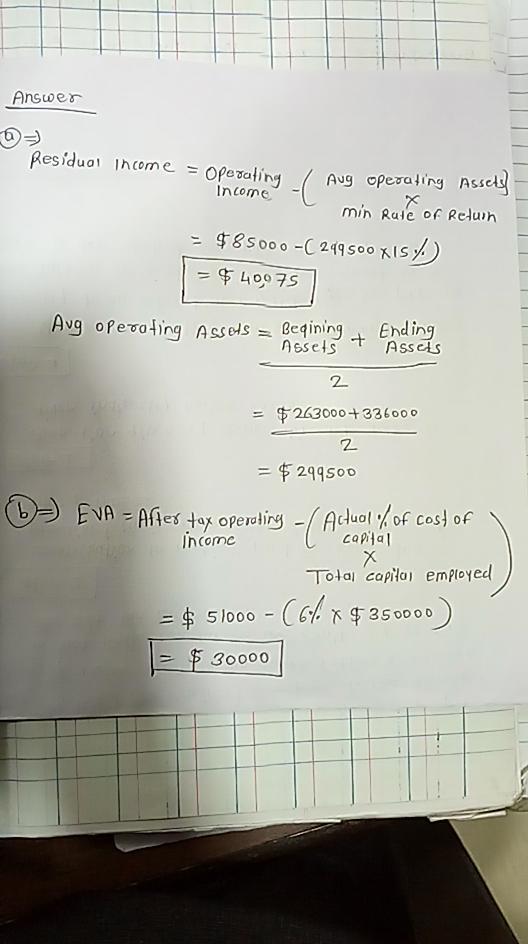 Answer
(a) ⇒
Residual Income = Operating Income - ( Avg operating Assets × min Rate of Return
= $85000 - ( 299500 × 15 % )
= $ 40,075
Avg operating Assets = Begining Assets + Ending Assets
2
= $ 263000 + 336000
2
= $ 299500
(b) ⇒ EVA = After tax operating income - ( Actual % of cost of capital × Total capital employed )
= $ 51000 - ( 6% × $ 350000 )
= $ 30000